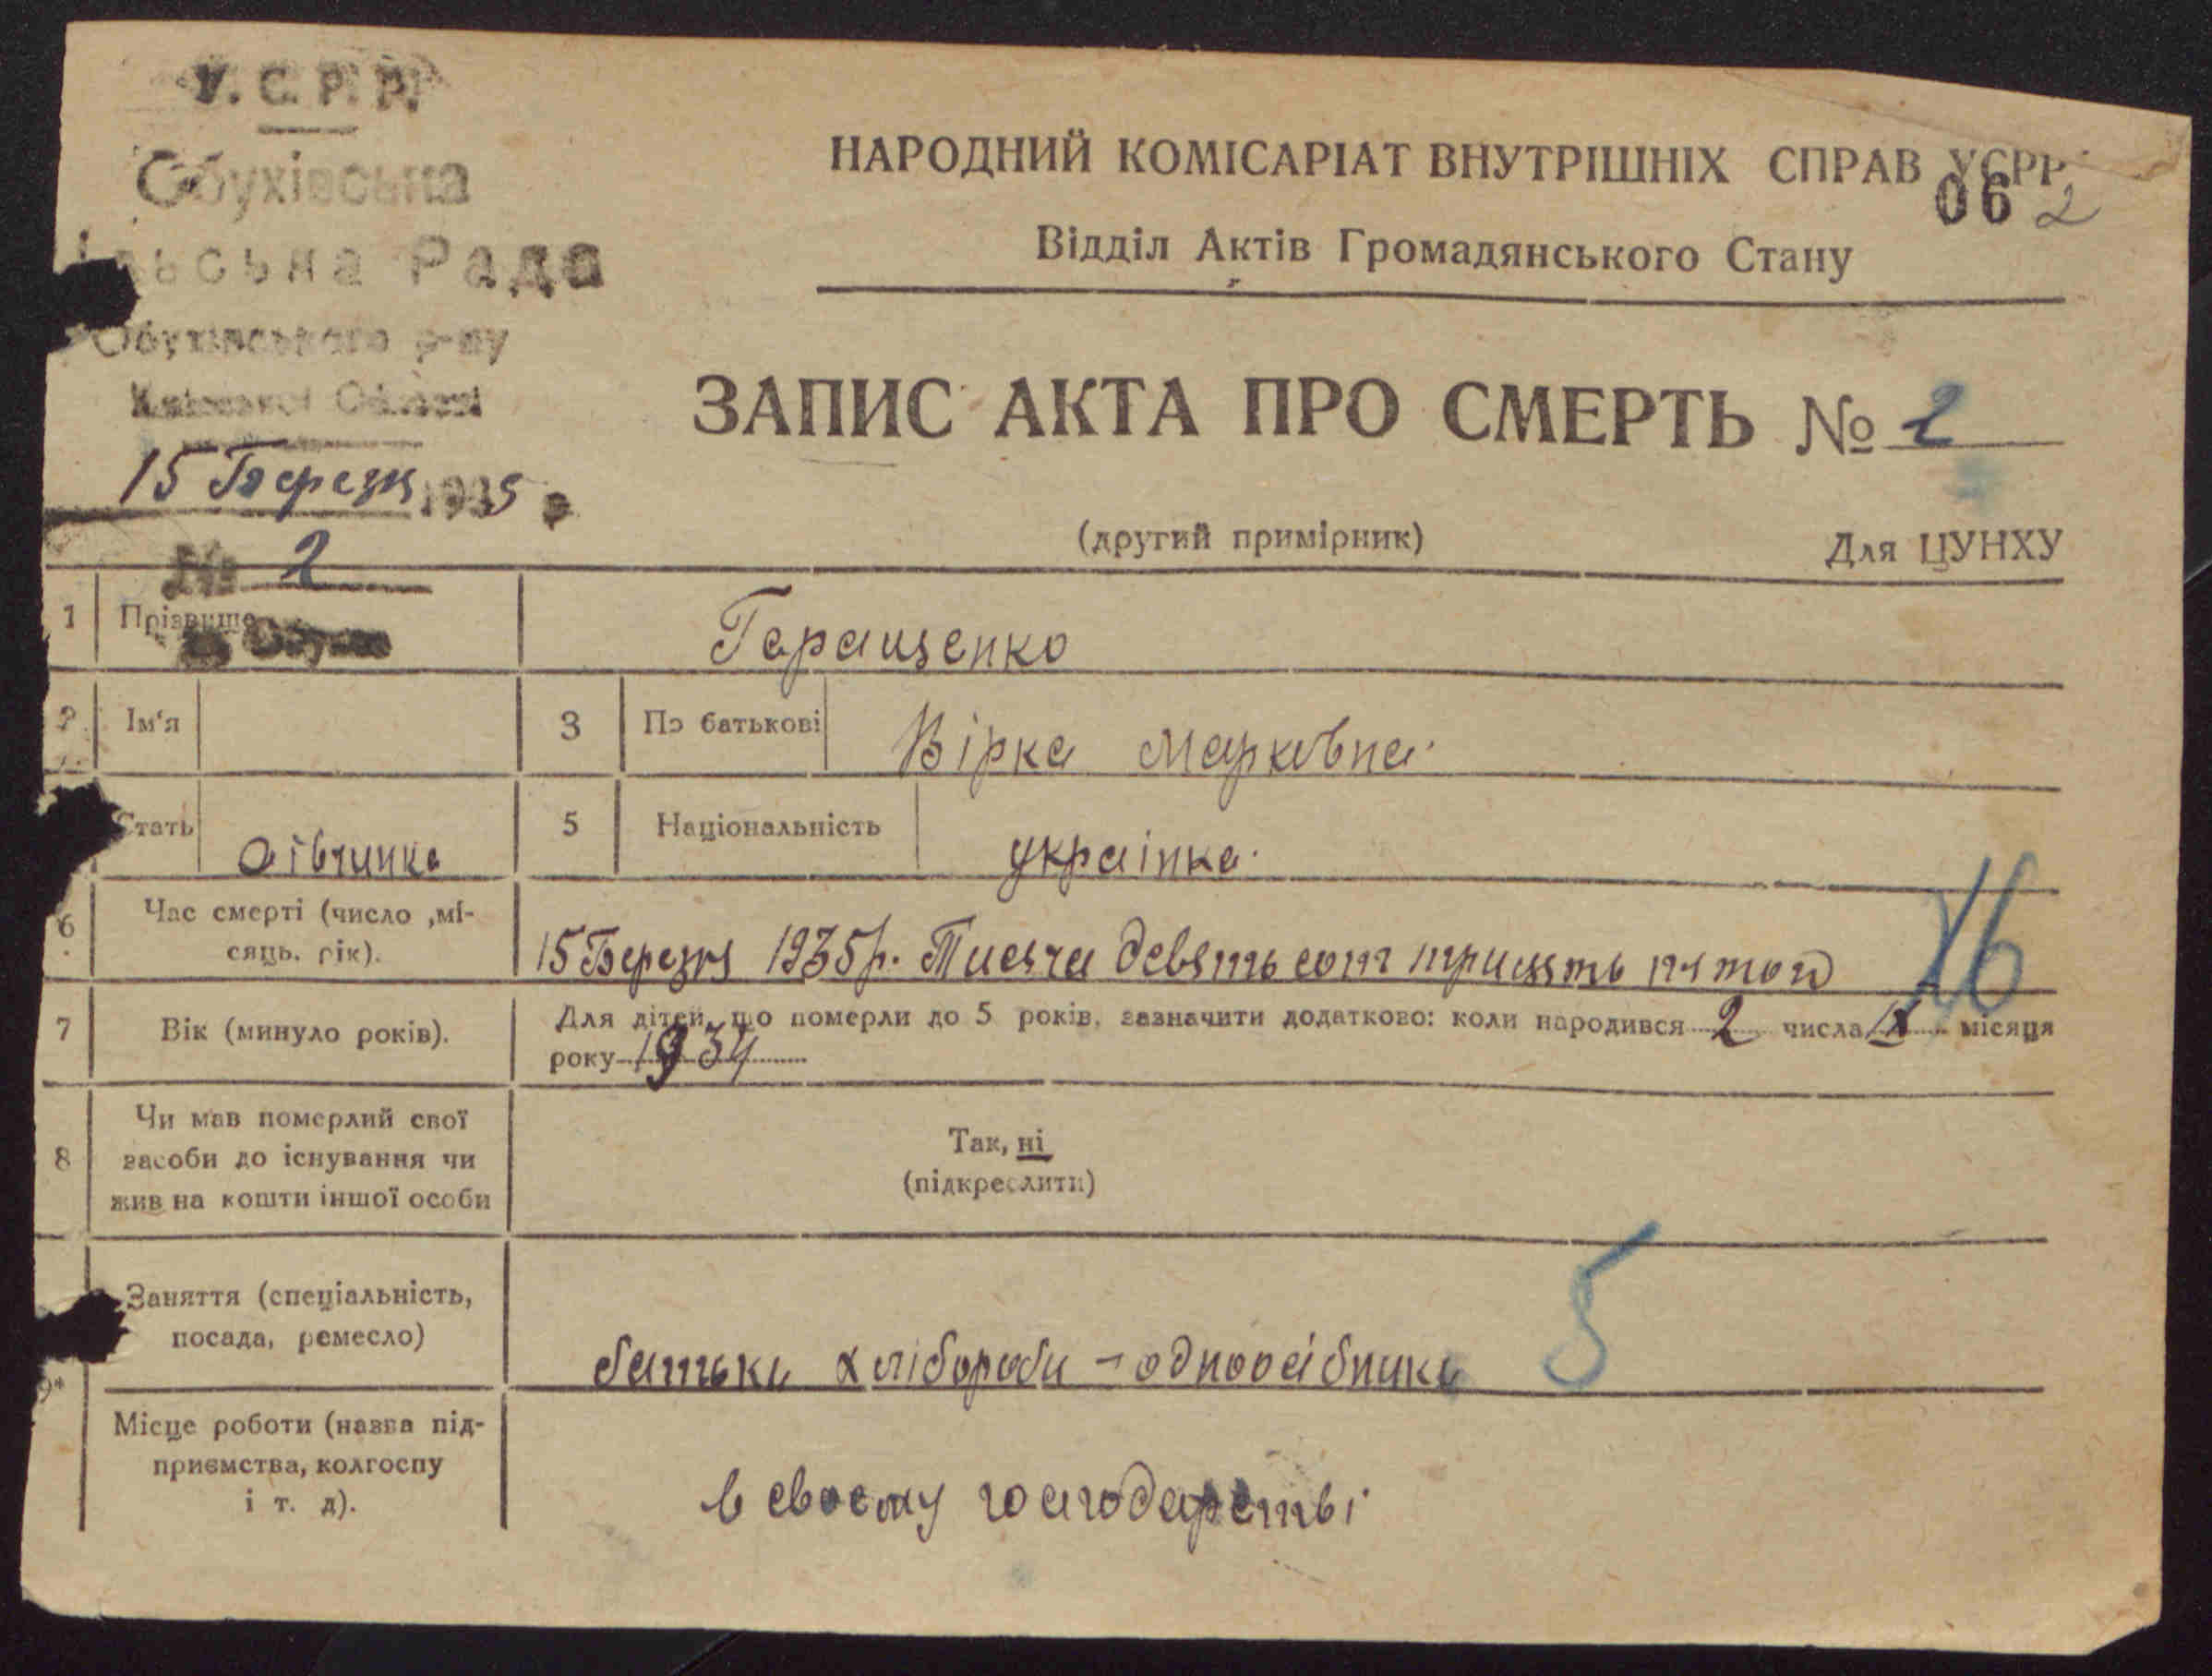 У.С.Р.Р.
Обухівська
ільська Рада
Обухівського р-ну
Київської Області
15 Березня 1935 р
№ 2
НАРОДНИЙ КОМІСАРІАТ ВНУТРІШНІХ СПРАВ УСРР
06 2
Відділ Актів Громадянського Стану
ЗАПИС АКТА ПРО СМЕРТЬ № 2
(другий примірник) Для ЦУНХУ
1 Прізвище Геращенко
2 Ім'я 3 По батькові Вірка Марковна
Стать дівчинка 5 Національність українка
6 Час смерті (число, мі-
сяць, рік). 15 Березня 1935 р. Тисяча девять сот трицять пятой
16
7 Вік (минуло років). Для дітей, що померли до 5 років, зазначити додатково: коли народився 2 числа IX місяця
року 1934
8 Чи мав померлий свої
засоби до існування чи
жив на кошти іншої особи
Так, ні
(підкреслити)
Заняття (спеціальність,
посада, ремесло) батьки хлібороби - одноосібники 5
9*
Місце роботи (назва під-
приємства, колгоспу
і т. д).
в своєму господарстві